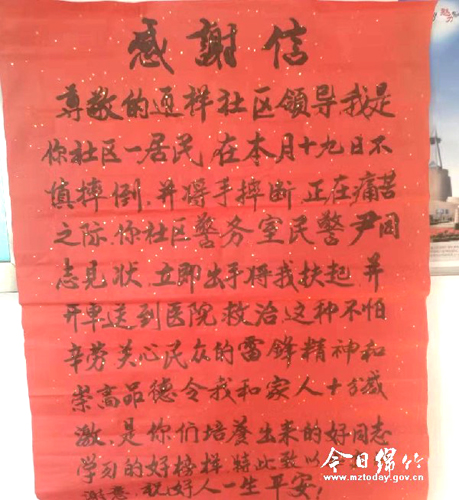 感謝信
尊敬的迎祥社区领导我是
你社区一居民,在本月十九日不
慎摔倒,并将手摔断,正在痛苦
之际,你社区警务室民警尹同
志见状,立即出手将我扶起,并
开車送到医院救治,这种不怕
辛劳关心民众的雷鋒精神和
崇高品德令我和家人十分感
激,是你们培養出来的好同志
学习的好榜样,特此致以
谢意,祝好人一生平安
今日绵竹
www.mztoday.gov.cn